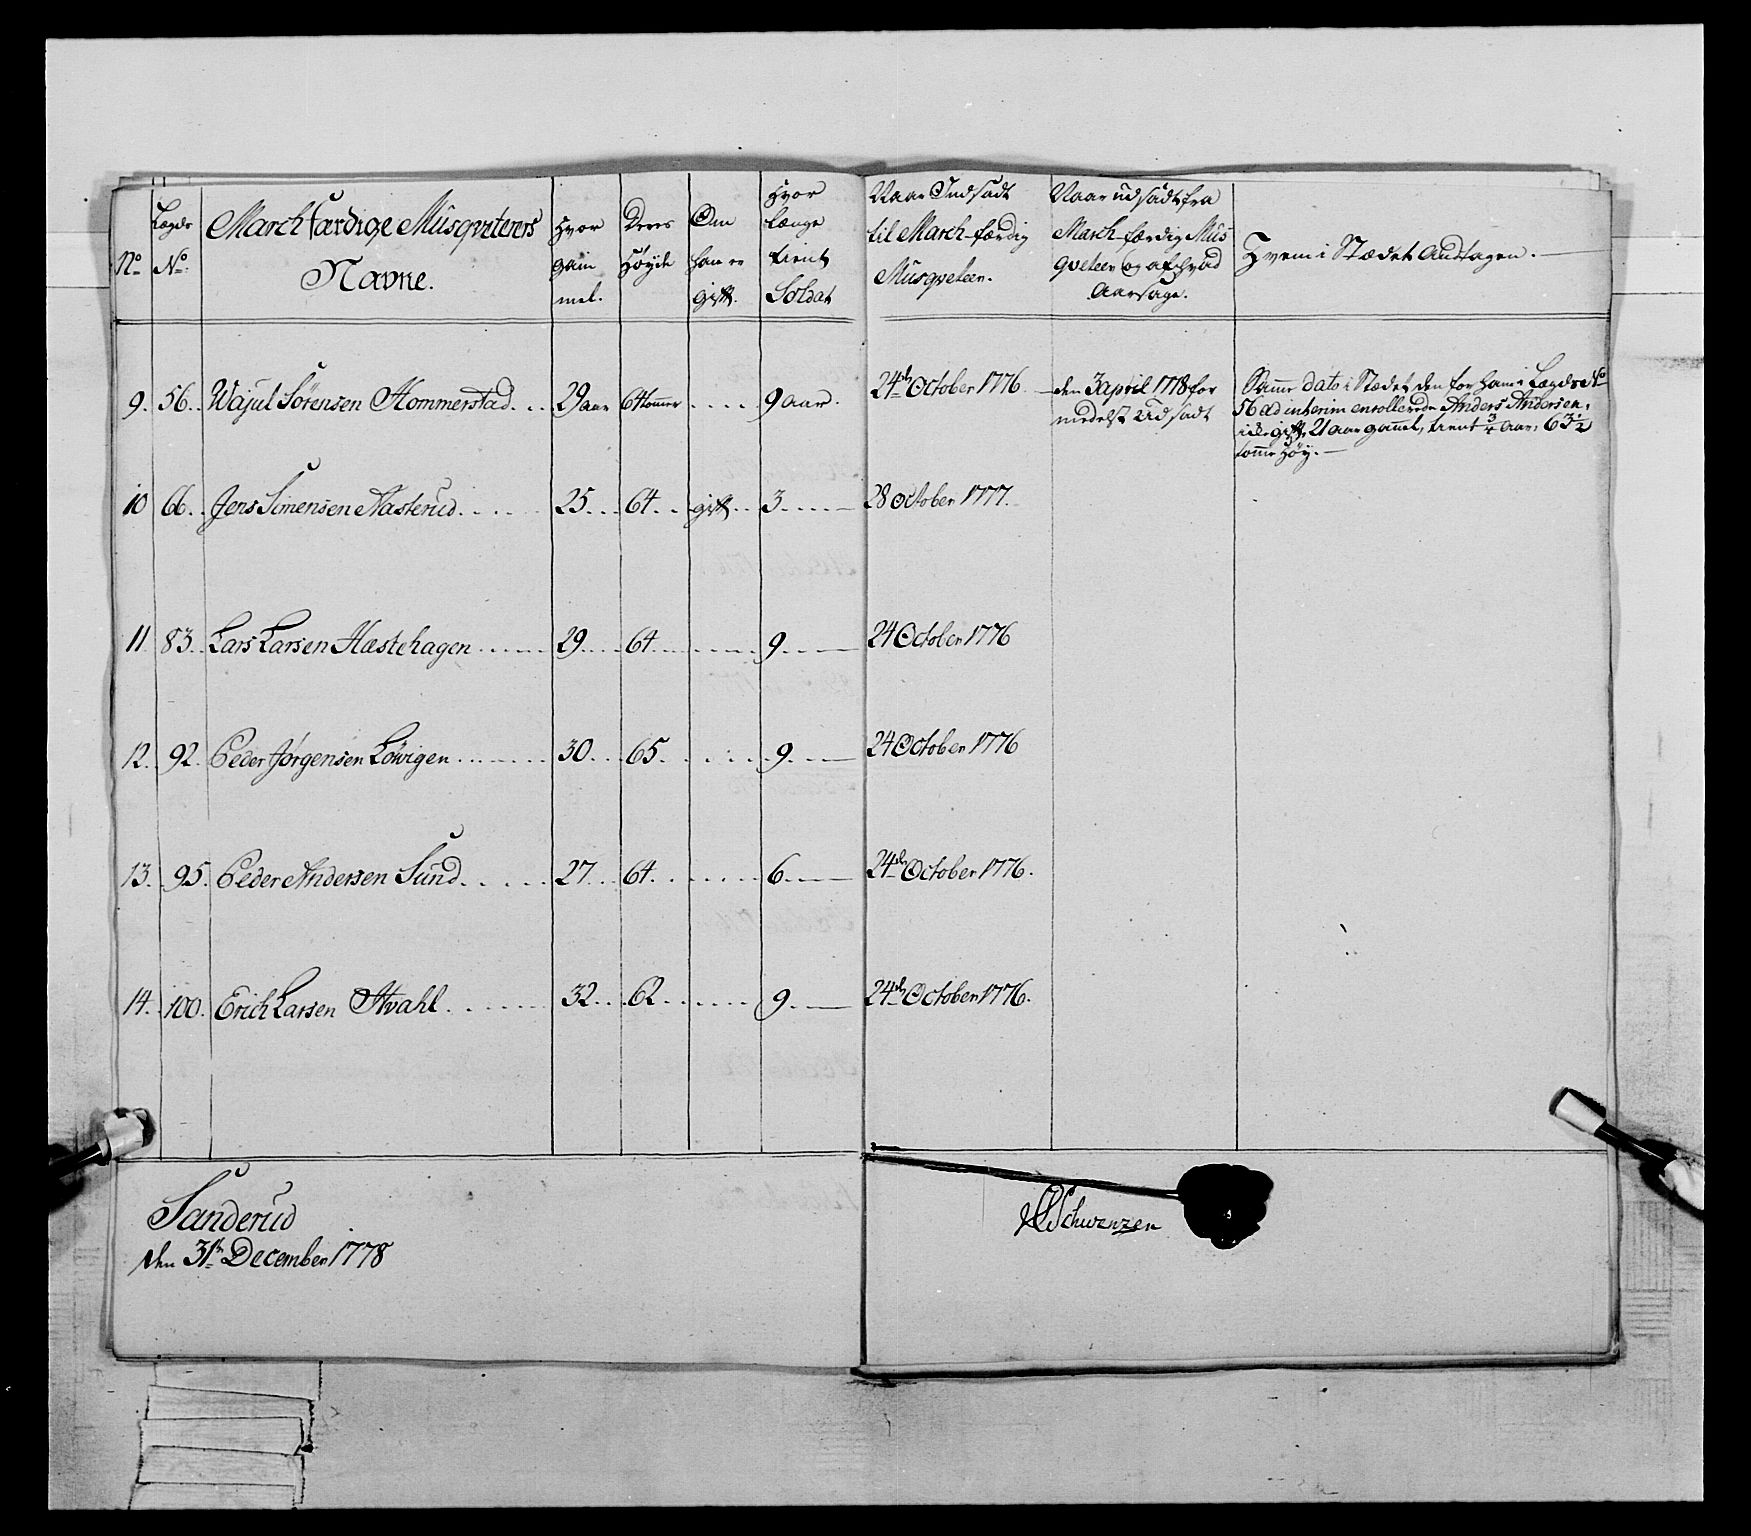 N° Lægds N° March færdige Musqveterers Navne. Hvor gam mel. Deres Høyde Om han er gift. Hvor længe tient Soldat Naar Indsadt til March-færdig Musqveteer. Naar udsadt fra March-færdig Mus qveteer og af hvad Aarsage. Hvem i Stædet Andtagen.
9. 56. Wajul Sörensen Hommerstad. 29 aar 64 tommer 9 aar. 24de October 1776. den 3 april 1778 for medelst Udsadt Samme dato i Stædet den for ham i Lægds No
56 ad interim enrollerede Anders Andersen,
icke gift, 21 aar gammel, tient 3/4 aar, 63 1/2
tomme Høy.
10 66. Jens Simensen Nasterud. 25. 64. gift. 3. 28 October 1777.
11 83. Lars Larsen Hæstehagen 29. 64. 9. 24 October 1776
12. 92. Peder Jörgensen Lövigen 30. 65. 9. 24 October 1776
13. 95. Peder Andersen Sund. 27. 64. 6. 24de October 1776.
14. 100. Erich Larsen Hvahl. 32. 62. 9. 24de October 1776.
Sanderud
den 31te December 1778
Schwenzen